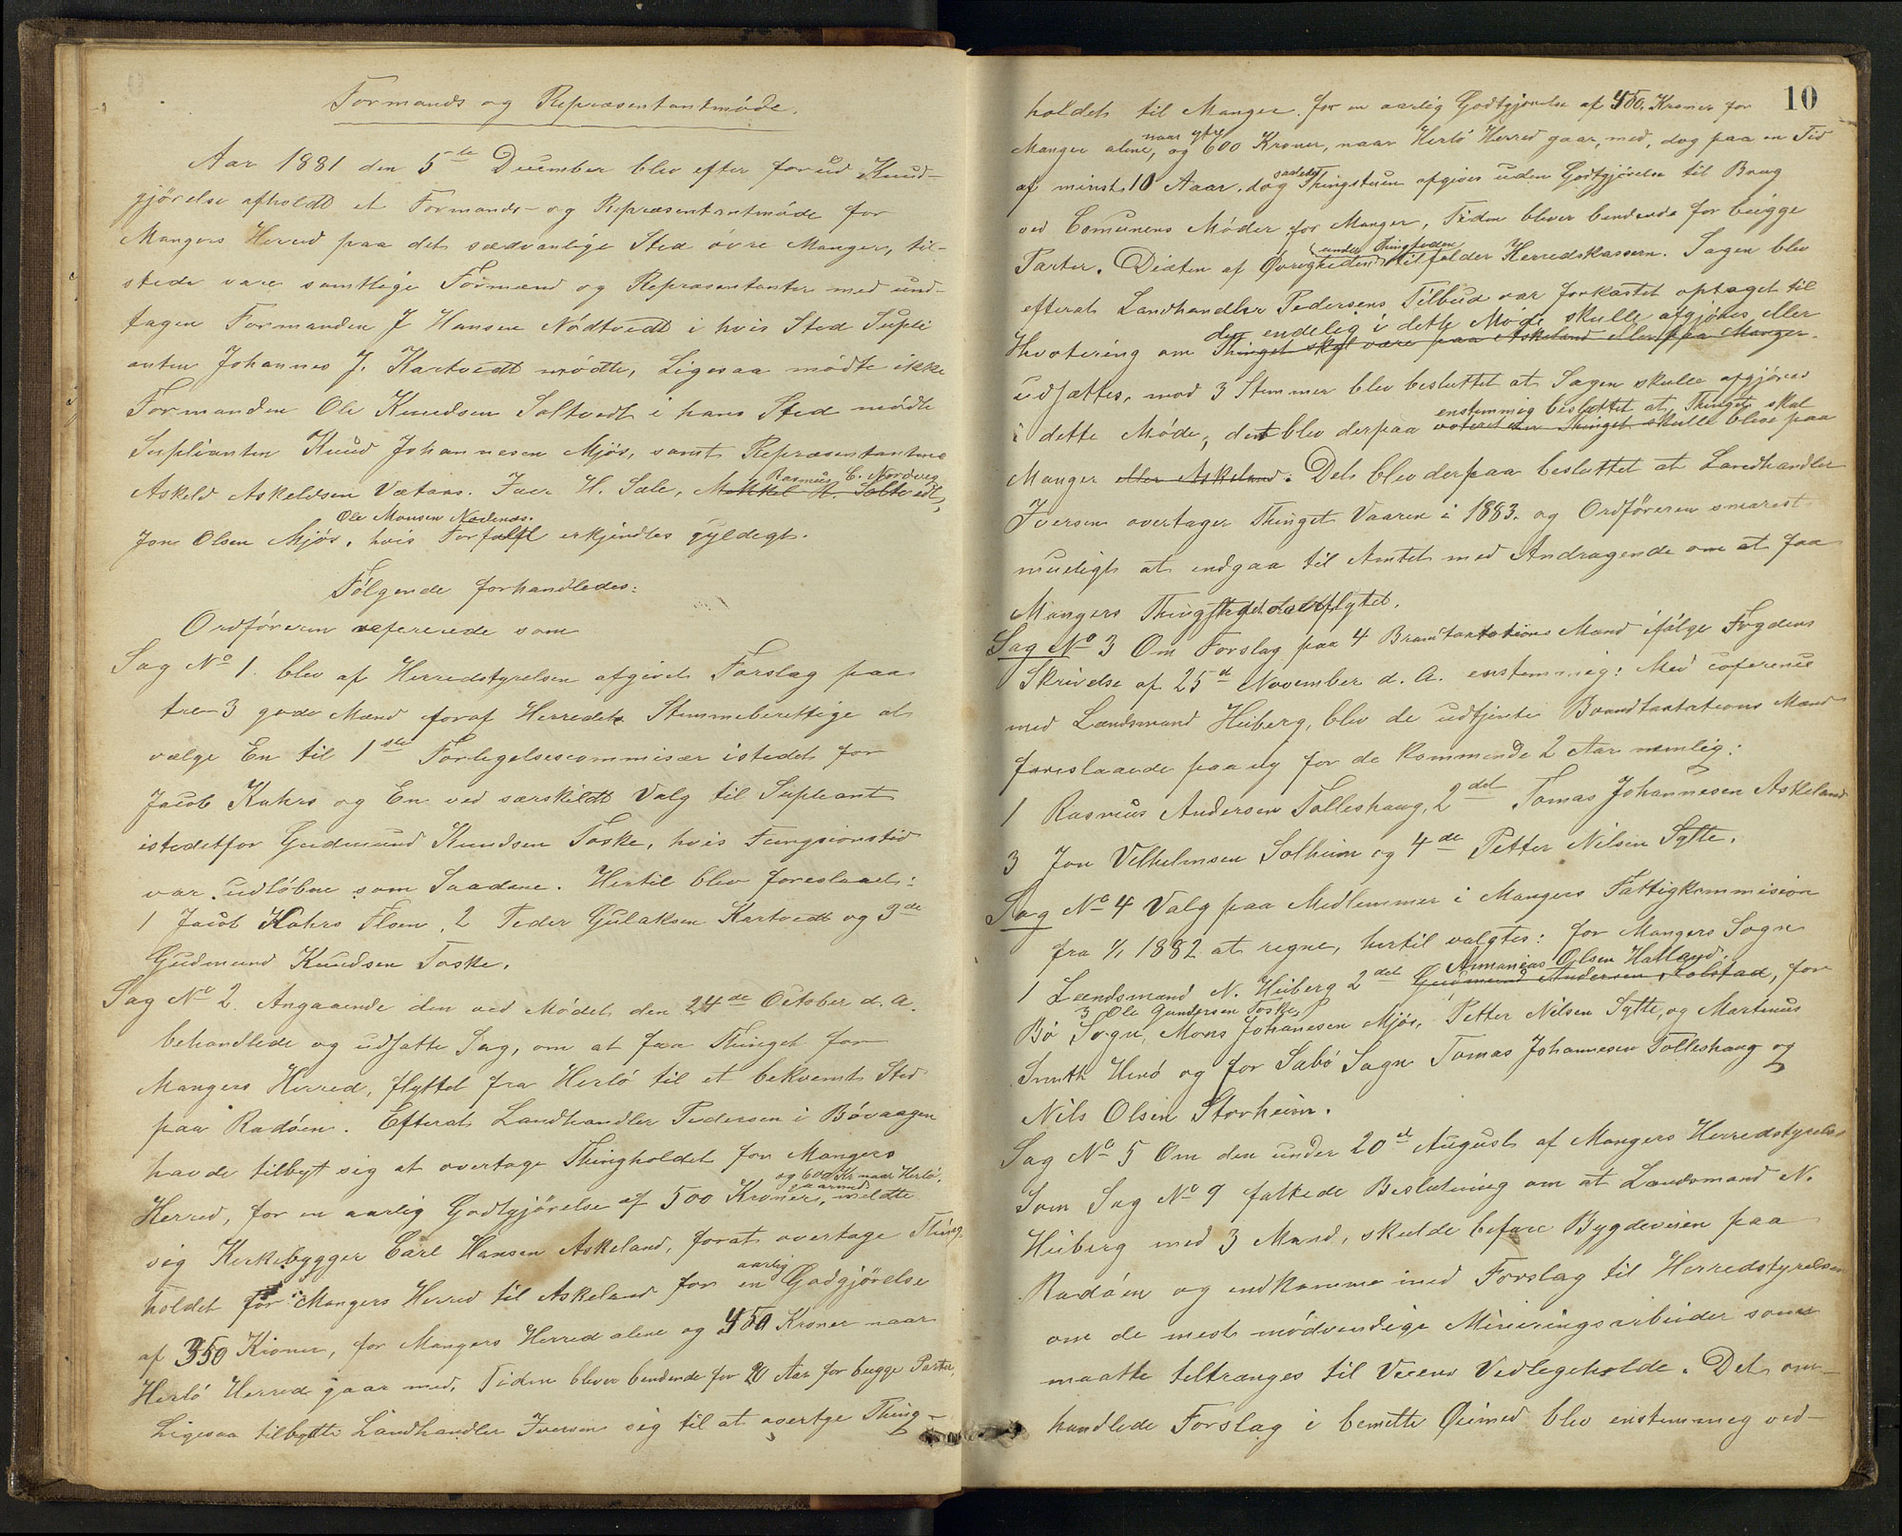 Formands og Repræsentantmöde.
Aar 1881 den 5te December blev efter forud Kund-
gjörelse afholdt et Formands- og Repræsentantmöde for
Mangers Herred paa det sædvanlige Sted övre Manger, til-
stede vare samtlige Formænd og Repræsentanter med und-
tagen Formanden J Hansen Nödtvedt i hvis Sted Supli
anten Johannes J. Kartvedt mödte, Ligesaa mödte ikke
Formanden Ole Knudsen Soltvedt i hans Sted mödte
Suplianten Knud Johannesen Mjös, samt Repræsentanterne
Rasmus C. Nordveg
Askeld Askeldsen Vætaas. Iver H. Sale, Mikkel M. Soltvedt,
Ole Monsen Nedenæs.
Jon Olsen Mjös, hvis Forfald erkjendtes gyldigt.
Fölgende forhandledes:
Ordföreren refererede som
Sag No 1. blev af Herredstyrelsen afgivet Forslag paa
tre 3 gode Mænd foraf Herredets Stemmeberettige at
vælge En til 1ste Forligelsescommisær istedet for
Jacob Kahrs og En ved særskildt Valg til Supleant
istedetfor Gudmund Knudsen Toske, hvis Fungsionstid
var udlöbne som Saadane. Hertil blev foreslaaet:
1 Jacob Kahrs Floen, 2 Peder Gulaksen Kartvedt og 3de
Gudmund Knudsen Toske.
Sag No 2. Angaaende den ved Mödet den 24de October d. A.
behandlede og udsatte Sag, om at faa Thinget for
Mangers Herred, flyttet fra Herlö til et bekvemt Sted
paa Radöen. Efterat Landhandler Pedersen i Bövaagen
havde tilbyt sig at overtage Thingholdet for Mangers
og 600 Kr naar Herlö,
gaar med
Herred, for en aarlig Godtgjörelse af 500 Kroner, meldte
sig Kirkebygger Carl Hansen Askeland, forat overtage Thing
aarlig
holdet for Mangers Herred til Askeland for en Godgjörelse
af 350 Kroner, for Mangers Herred alene og 450 Kroner naar
Herlö Herred gaar med, Tiden bliver bendende for 20 Aar for begge Parter,
Ligesaa tilbydte Landhandler Iversen sig til at overtge Thing-
10
holdet til Manger for en aarlig Godtgjörelse af 450 Kroner for
naar
Manger alene, og 600 Kroner, naar Herlö Herred gaar med, dog paa en Tid
saaledes
af minst 10 Aaar. dog Thingstuen afgives uden Godtgjörelse til Brug
ved Comunens Möder for Manger, Tiden bliver bendende for beigge
under Thingfreden
Parter. Diæten af Övrigheden tilfalder Herredskassen. Sagen blev
efterat Landhandler Pedersens Tilbud var forkastet optaget til
den endelig i dette Möde skulle afgjöres eller
Hvotering om Thinget skal være paa Askeland eller paa Manger.
udsættes, mod 3 Stemmer blev besluttet at Sagen skulle afgjöres
enstemmig besluttet at Thinget skal
i dette Möde, det blev derpaa voteret om Thinget skulle blive paa
Manger eller Askeland. Det blev derpaa besluttet at Landhandler
Iversen overtager Thinget Vaaren i 1883. og Ordföreren snarest
mueligt at indgaa til Amtet med Andragende om at faa
Mangers Thingsted
Sag No 3 Om Forslag paa 4 Brandtaxtations Mænd ifölge Fogdens
Skrivelse af 25d November d. A. enstemmig: Med coference
med Lændsmand Heiberg, blev de udtjente Brandtaxtations Mænd
foreslaaede paa ny for de kommende 2 Aar nemlig:
1 Rasmus Andersen Tolleshaug, 2det Tomas Johannesen Askeland
3 Jon Vilhelmsen Solheim og 4de Petter Nilsen Sylte.
Sag No 4 Valg paa Medlemmer i Mangers Fattigkommision
fra 1/1 1882 at regne, hertil valgtes: for Mangers Sogn
Ananias Olsen Hatland.
1 Lændsmænd N. Heiberg 2det Gudmund Andersen Tolstad, for
3 Ole Gundersen Toske,
Bö Sogn, Mons Johanesen Mjös, Petter Nilsen Sylte, og Martinus
Smith Herö og for Sæbö Sogn Tomas Johannesen Tolleshaug og
Nils Olsen Storheim.
Sag No 5 Om den under 20de August af Mangers Herredstyrelse
Som Sag No 9 fattede Beslutning om at Lændsmand N.
Heiberg med 3 Mænd, skulde befare Bygdeveien paa
Radöen og indkomme med Forslag til Herredstyrelsen
om de mest mödvendige Mineringsarbeider som
maatte tiltrænges til Veiens Vedlegeholde. Det om-
handlede Forslag i bemelte Öiemed blev enstemmig ved-